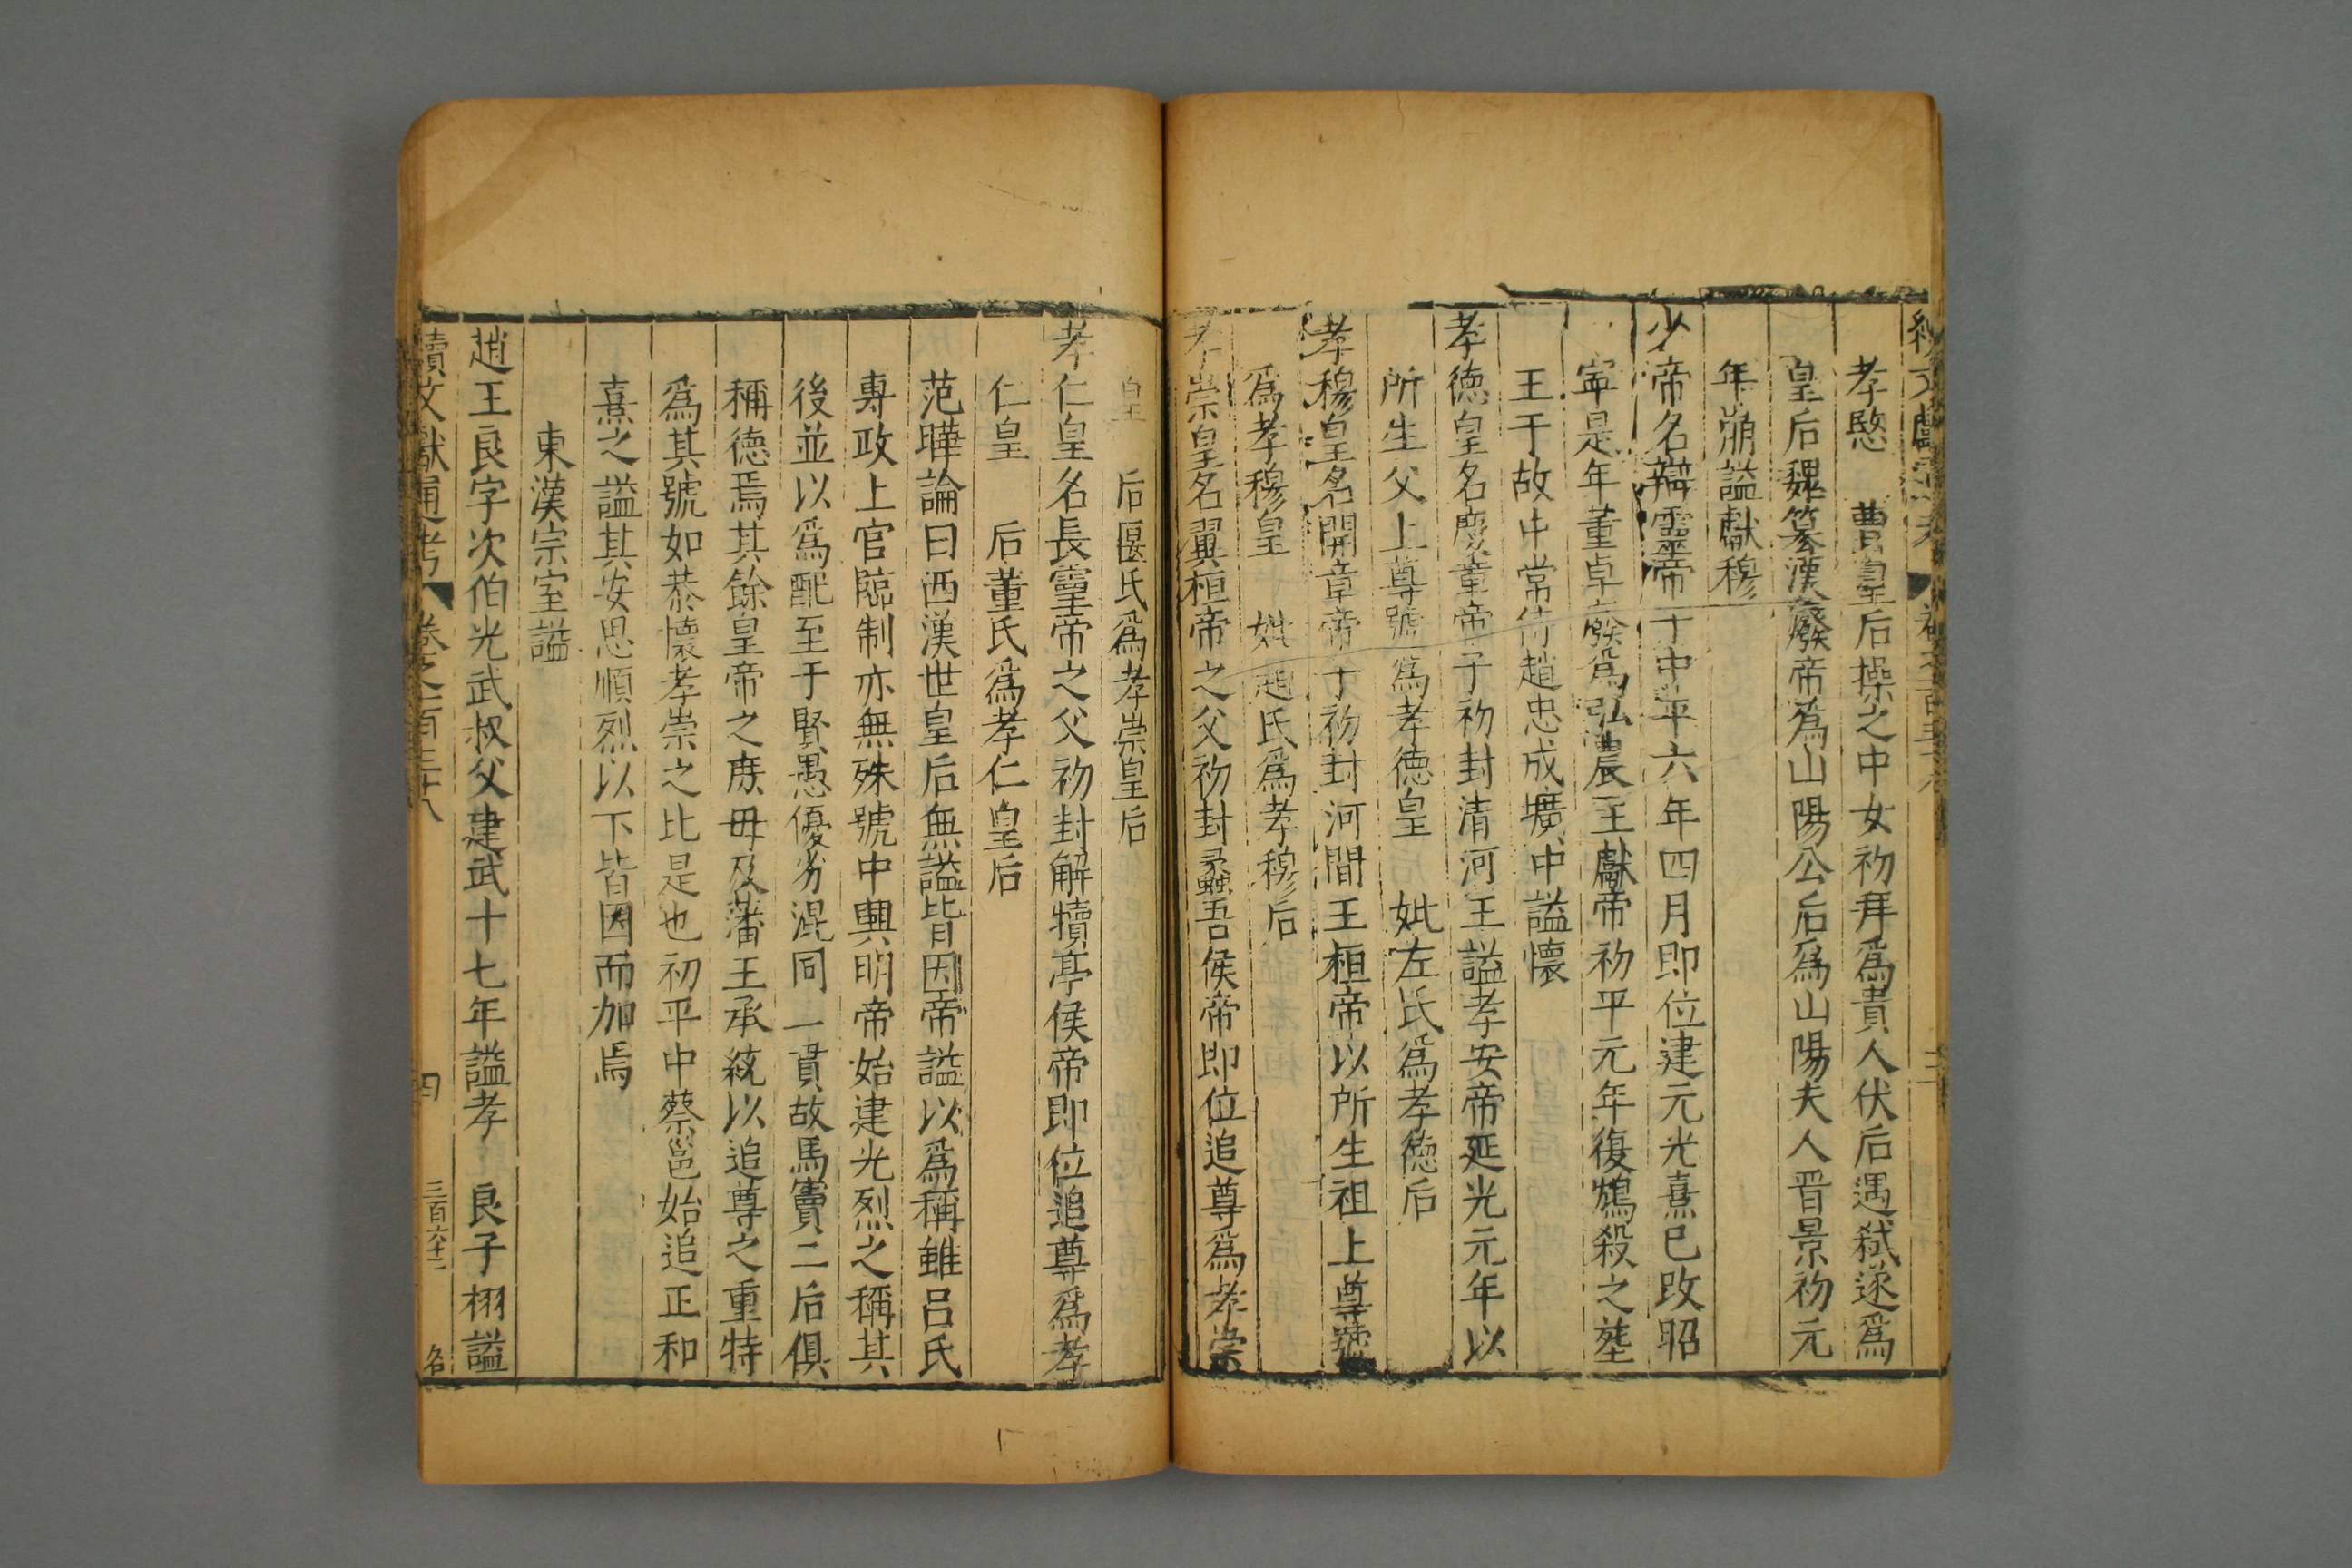 孝愍　曹皇后操之中女初拜爲貴人伏后遇弑遂爲
皇后魏篡漢廢帝爲山陽公后爲山陽夫人晉景初元
年崩謚獻穆
少帝名辯靈帝子中平六年四月即位建元光熹已改昭
寧是年董卓廢爲弘農王獻帝初平元年復鴆殺之塟
王于故中常侍趙忠成壙中謚懷
孝德皇名慶章帝子初封清河王謚孝安帝延光元年以
所生父上尊號爲孝德皇　妣左氏爲孝德后
孝穆皇名開章帝子初封河間王桓帝以所生祖上尊號
爲孝穆皇　妣趙氏爲孝穆后
孝崇皇名翼桓帝之父初封蠡吾侯帝即位追尊爲孝崇
皇　后匽氏爲孝崇皇后
孝仁皇名長靈帝之父初封解犢亭侯帝即位追尊爲孝
仁皇　后董氏爲孝仁皇后
范曄論曰西漢世皇后無謚皆因帝謚以爲稱雖吕氏
專政上官臨制亦無殊號中興明帝始建光烈之稱其
後並以爲配至于賢愚優劣混同一貫故馬竇二后俱
稱德焉其餘皇帝之庶毋及藩王承統以追尊之重特
爲其號如恭懷孝崇之比是也初平中蔡邕始追正和
熹之謚其安思順烈以下皆因而加焉
東漢宗室謚
趙王良字次伯光武叔父建武十七年謚孝　良子栩謚
續文獻通考　卷之一百三十八　四　三百六十二　名